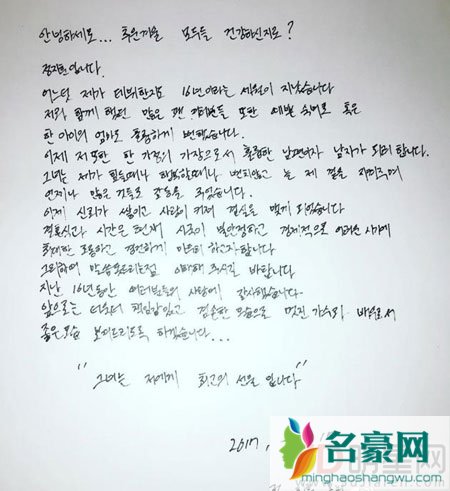 안녕하세요... 추운겨울 모두들 건강하신지요?
전지현입니다.
어느덧 제가 데뷔한지도 16년이라는 세월이 지났습니다
저와 함께 했던 많은 팬 여러분들 또한 숙녀로 혹은
한 아이의 엄마로 훌륭하게 변했습니다.
이제 저 또한 한 가정의 가장으로서 훌륭한 남편이자 남자가 되려 합니다.
그녀는 제가 힘들때나 행복할때나 변치않고 늘 제 곁을 지켜주며
언제나 많은 것들로 감동을 주었습니다.
이제 신뢰가 쌓이고 사랑이 커져 결실을 맺게 되었습니다
결혼식과 시간은 현재 시국이 불안정하고 경제적으로 어려운 시기에
최대한 조용하고 경건하게 마음
하고자합니다
그리하여 말씀못드리는점 이해해 주시길 바랍니다
지난 16년동안 여러분들의 사랑에 감사했습니다.
앞으로는 더욱더 책임감있고 겸손한 모습으로 멋진 가수와 배우로서
좋은모습 보여드리도록 하겠습니다...
"그녀는 저에게 최고의 선물 입니다"
2017.
名豪网
minghaoshangwu.com